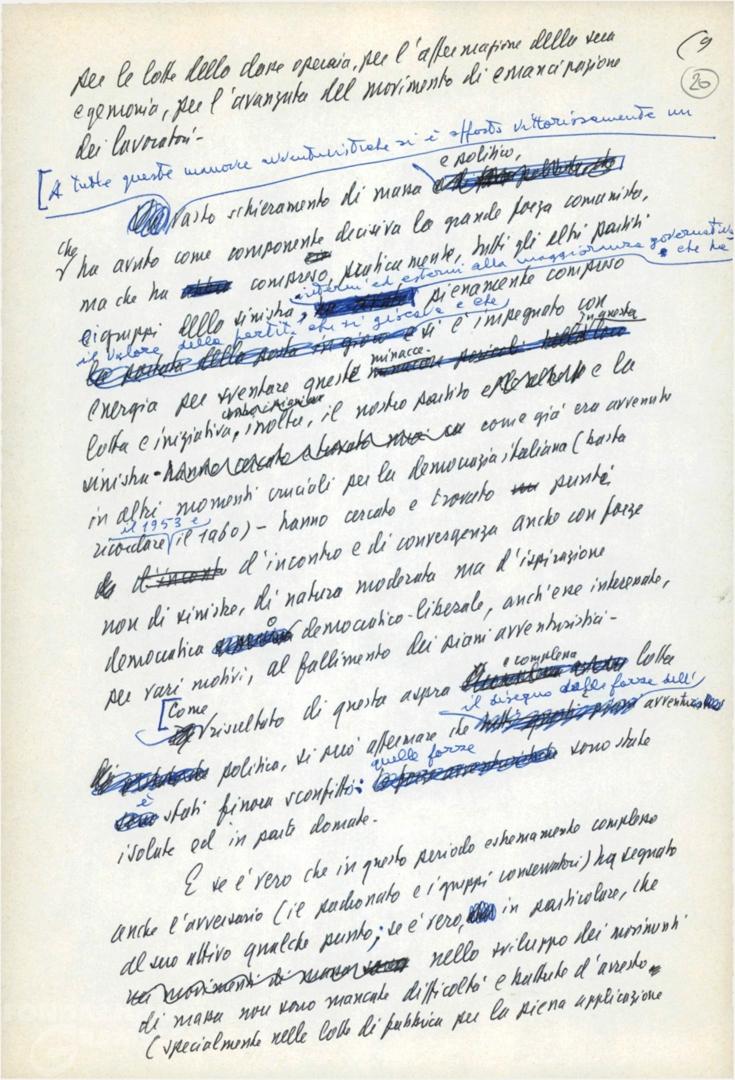 (9
26
per le lotte della classe operaia, per l'affermazione della sua
egemonia, per l'avanzata del movimento di emancipazione
dei lavoratori-
[A tutte queste manovre avventuristiche si è opposto vittoriosamente un
e politico,
vasto schieramento di massa
che
ha avuto come componente decisiva la grande forza comunista,
ma che ha compreso, praticamente, tutti gli altri partiti
interni ed esterni alla maggioranza governativa
e i gruppi della sinistra, pienamente compreso che ha
il valore della partita che si giocava e che
la portata della posta in gioco e si è impegnato con
energia per sventare queste minacce. in questa
lotta e iniziativa, inoltre, il nostro partito e la
sinistra - hanno cercato e trovato come già era avvenuto
in altri momenti cruciali per la democrazia italiana (basta
il 1953 e
ricordare il 1960) - hanno cercato e trovato punti
d'incontro e di convergenza anche con forze
non di sinistra, di natura moderata ma d'ispirazione
democratica o democratico-liberale, anch'esse interessate,
per vari motivi, al fallimento dei piani avventuristici-
e complessa
[Come risultato di questa aspra lotta
il disegno delle forze dell'
politica, si può affermare che avventura
è quelle forze
stati finora sconfitti: sono state
isolate ed in parte domate-
E se è vero che in questo periodo estremamente complesso
anche l'avversario (il padronato e i gruppi conservatori) ha segnato
al suo attivo qualche punto; se è vero, in particolare, che
nei movimenti di massa nello sviluppo dei movimenti
di massa non sono mancate difficoltà e battute d'arresto
(specialmente nelle lotte di fabbrica per la piena applicazione